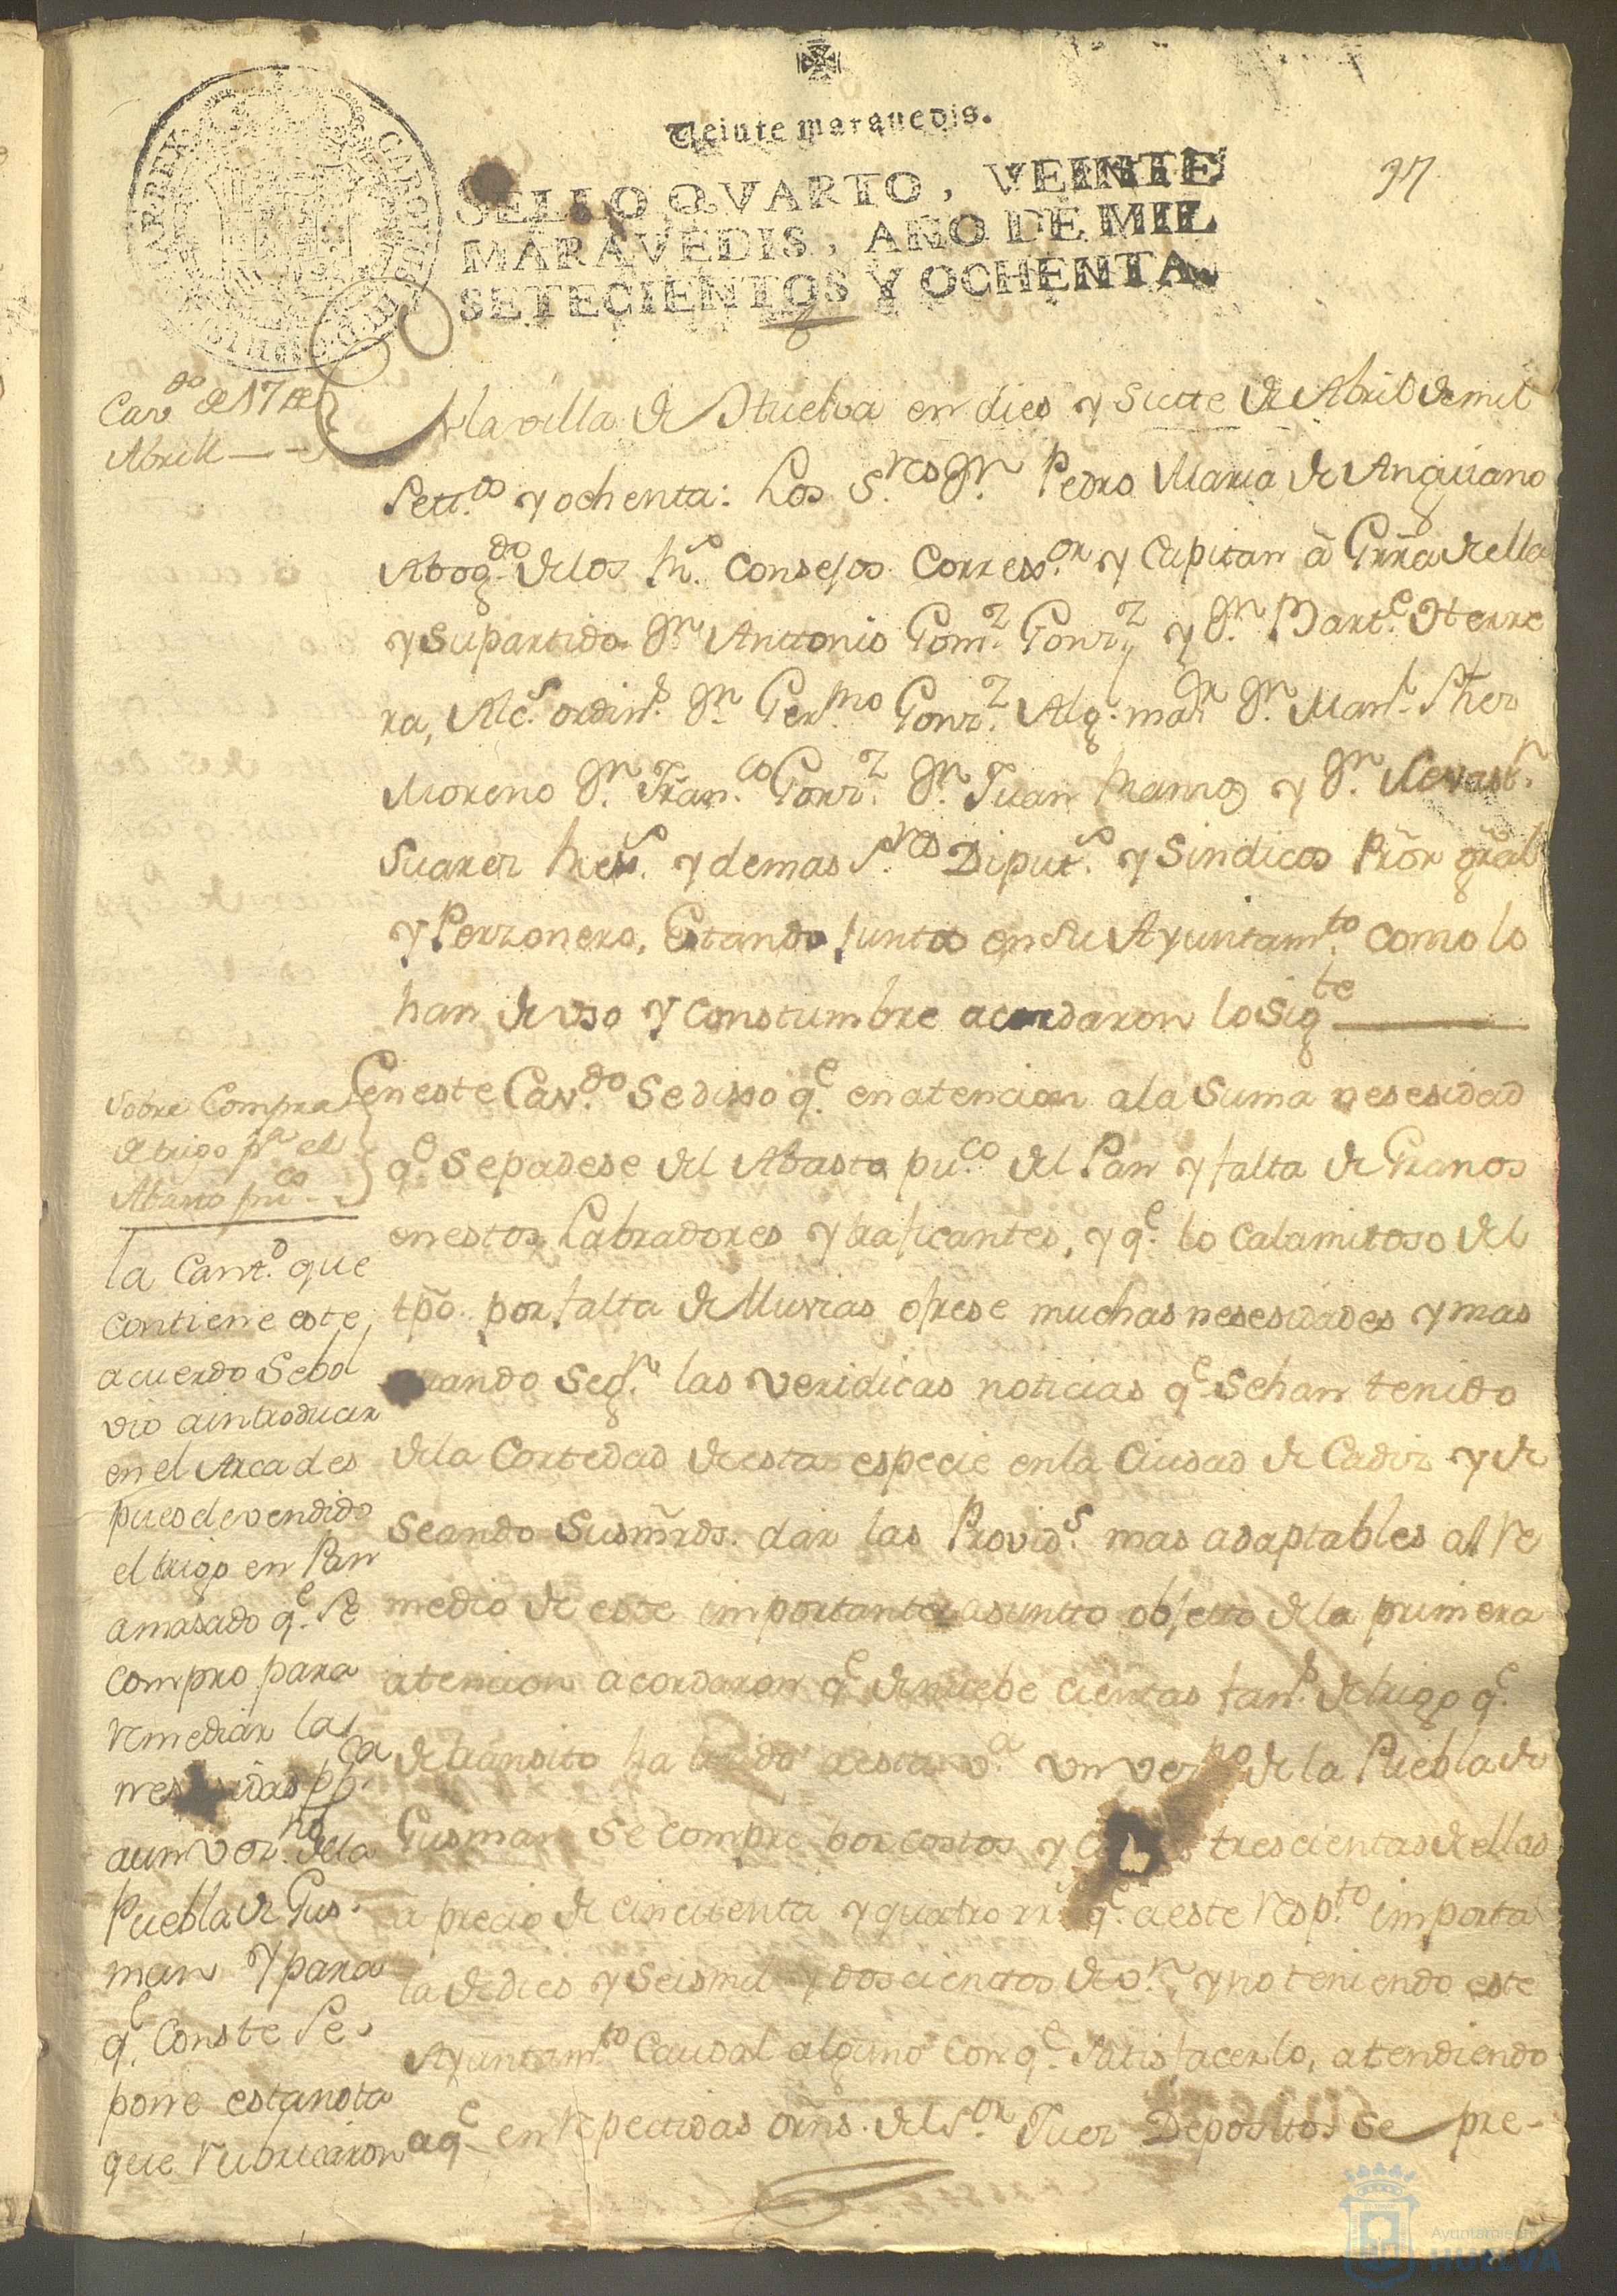 Veinte maravedis.
SELLO QVARTO, VEINTE
MARAVEDIS, AÑO DE MIL
SETECIENTOS Y OCHENTA.
37
CAROLUS III D G HISPANIAR REX
Cav.do de 17 de
Abrill
En la villa de Huelva en dies y Siette de Abril de mil
Sett.os y ochenta: Los S.res Dn. Pedro Maria de Anguiano
Abog.do de los R.s Consejos Correx.or y Capitan â Grra de ella
y Supartido Dn. Anttonio Gom.z Gonz.z y Dn. Bart.e Herre
ra, Alc.s ordin.s Dn. Ger.mo Gonz.z Alg. maior Dn. Man.l Sher
Moreno Dn. Fran.co Gonz.z Dn. Juan Ramos y Dn. Sevast.n
Suarez Rex.s y demas S.res Diput.s y Sindicos Prôr grâl
y Perzonero, Estando Juntos en su Ayuntam.to como lo
han de uso y Constumbre acordaron lo Sig.te
Sobre Compra
de trigo p.a el
Abasto pu.co
En este Cav.do Se dixo q.e en atencion a la Suma nesesidad
q.e Se padese del Abasto pu.co del Pan y falta de Granos
en estos Labradores y traficantes, y q.e lo Calamitoso del
tpô. por falta de lluvias ofrese muchas nesesidades y mas
quando Seg.n las veridicas noticias q.e Se han tenido
de la Cortedad de esta especie en la Ciudad de Cadiz y de
Seando Susmrds. dar las Provid.s mas adaptables al re
medio de esse importante asuntto objetto de la primera
atencion acordaron q.e de nuebe cientas fan.s de trigo q.e
de transito ha traido a esta v.a un vez.no de la Puebla de
Gusman Se compre por costos y trescientas de ellas
a precio de cincuenta y quatro rr.s q.e a este resp.to importa
la de dies y Seis mil y doscienttos de v.n, y no teniendo este
Ayuntam.to Caudal alguno con q.e Satisfacerlo, atendiendo
a q.e en repectidas orns. del S.or Juez Deposittos se pre-
la Cant.d que
contiene este
acuerdo Sebol
vio aintroducir
en el Arca des
pues de vendido
el trigo en Pan
amasado q.e Se
compro para
remediar las
nesesidas pb.ca
a un vez.no de la
Puebla de Gus
man y para
q.e Conste Se
pone esta nota
que rubricaron
Ayuntamiento
HUELVA